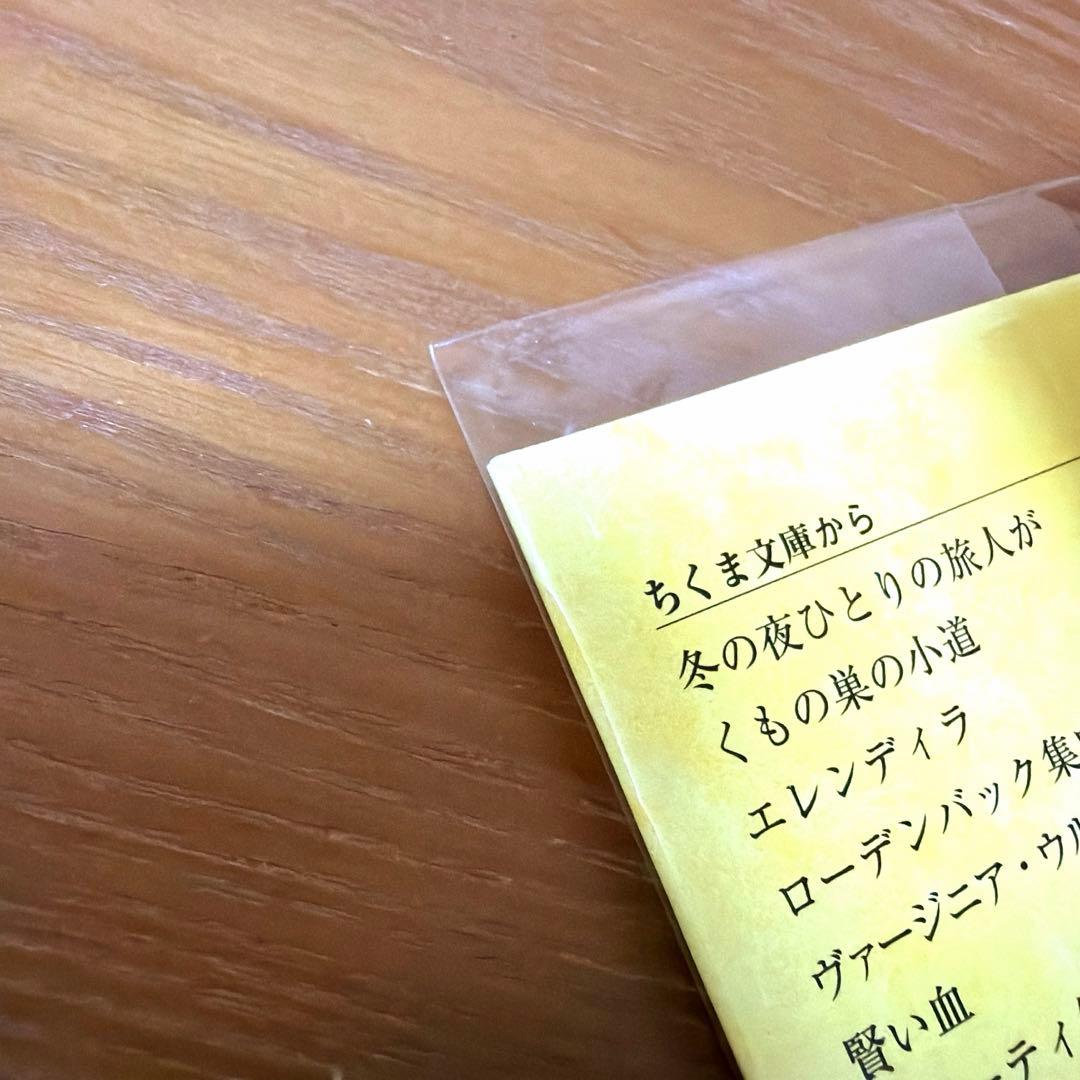 ちくま文庫から
冬の夜ひとりの旅人が
くもの巣の小道
エレンディラ
ローデンバック集
ヴァージニア・ウル
賢い血
ーティ